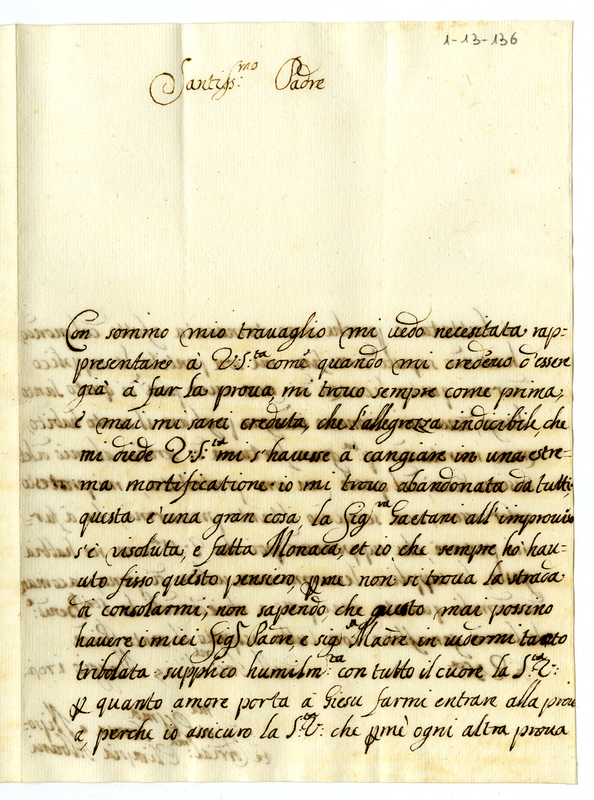 1-13-136
Santiss:mo Padre
Con sommo mio travaglio mi vedo necesitata rap=
presentare à V.S:ta come quando mi credevo d'essere
già à far la prova, mi trovo sempre come prima,
e mai mi sarei creduta, che l'allegrezza indicibile, che
mi diede V.S:tà mi s'havesse à cangiare in una estre=
ma mortificatione. io mi trovo abandonata da tutti,
questa e' una gran cosa, la Sig:ra Gaetani all'improviso
s'è risoluta, e fatta Monaca, et io che sempre hò hau=
uto fisso questo pensiero, p me non si trova la strada
di consolarmi; non sapendo, che gusto mai possino
havere i miei Sig:i Padre, e sig:ra Madre in vedermi tanto
tribolata supplico humilm:te con tutto il cuore la S:tà V:
p quanto amore porta à Giesu farmi entrare alla prou
a, perche io assicuro la S:tà V: che p mè ogni altra prova